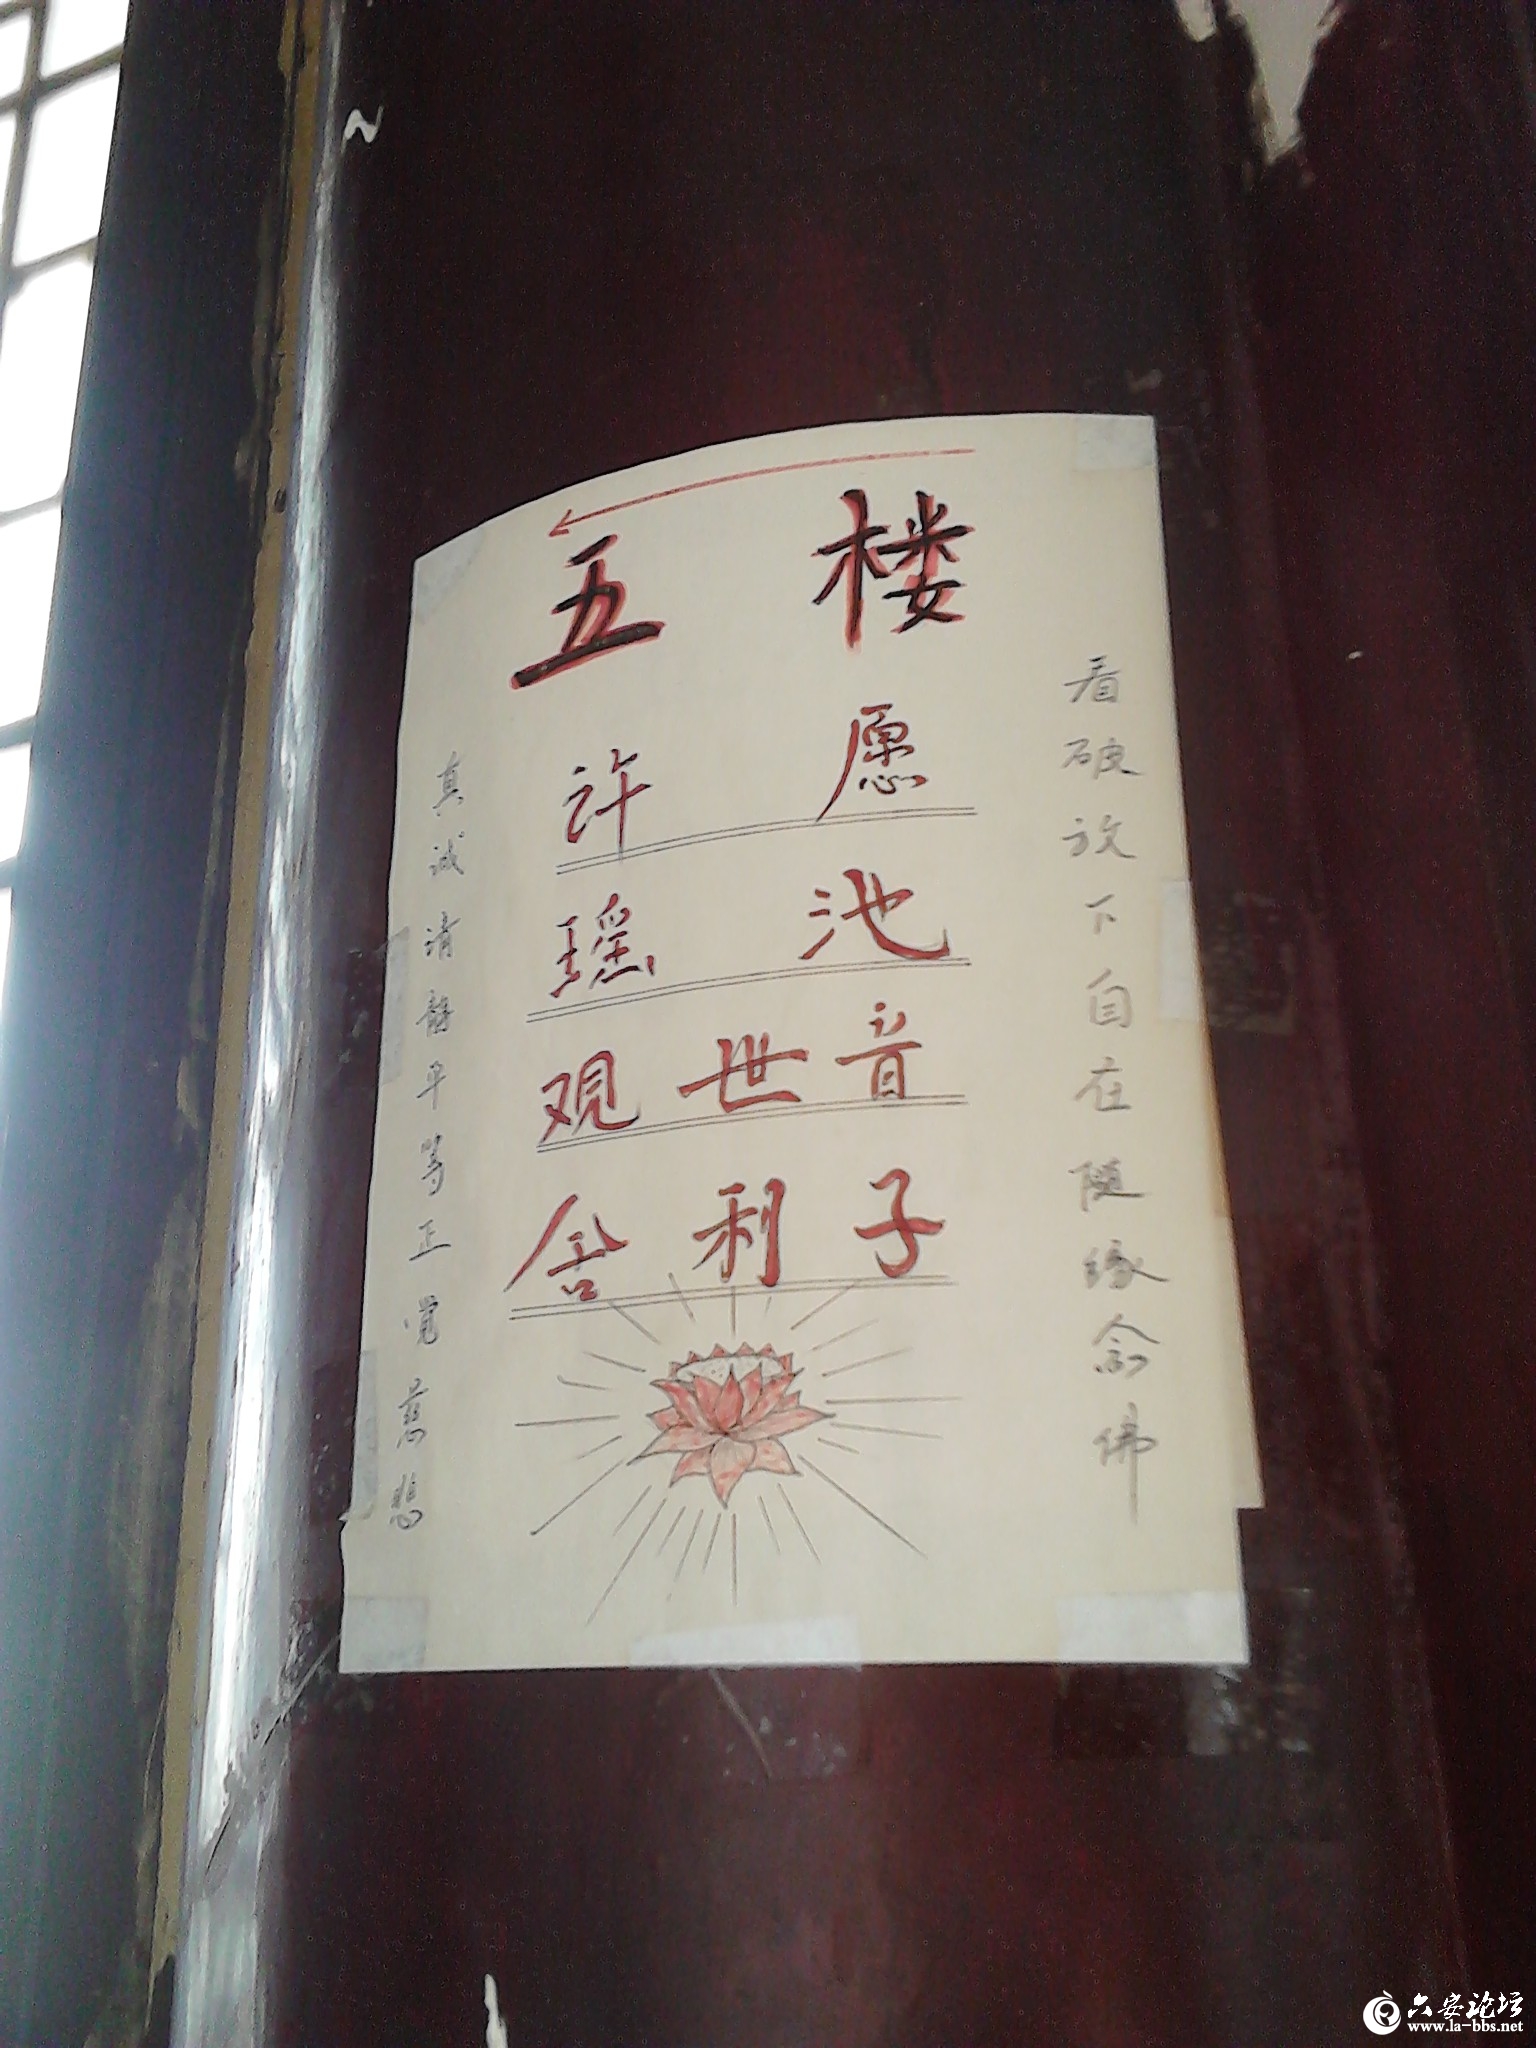 五楼
许愿
瑶池
观世音
舍利子
真诚清静平等正觉慈悲
看破放下自在随缘念佛
六安论坛
www.la-bbs.net